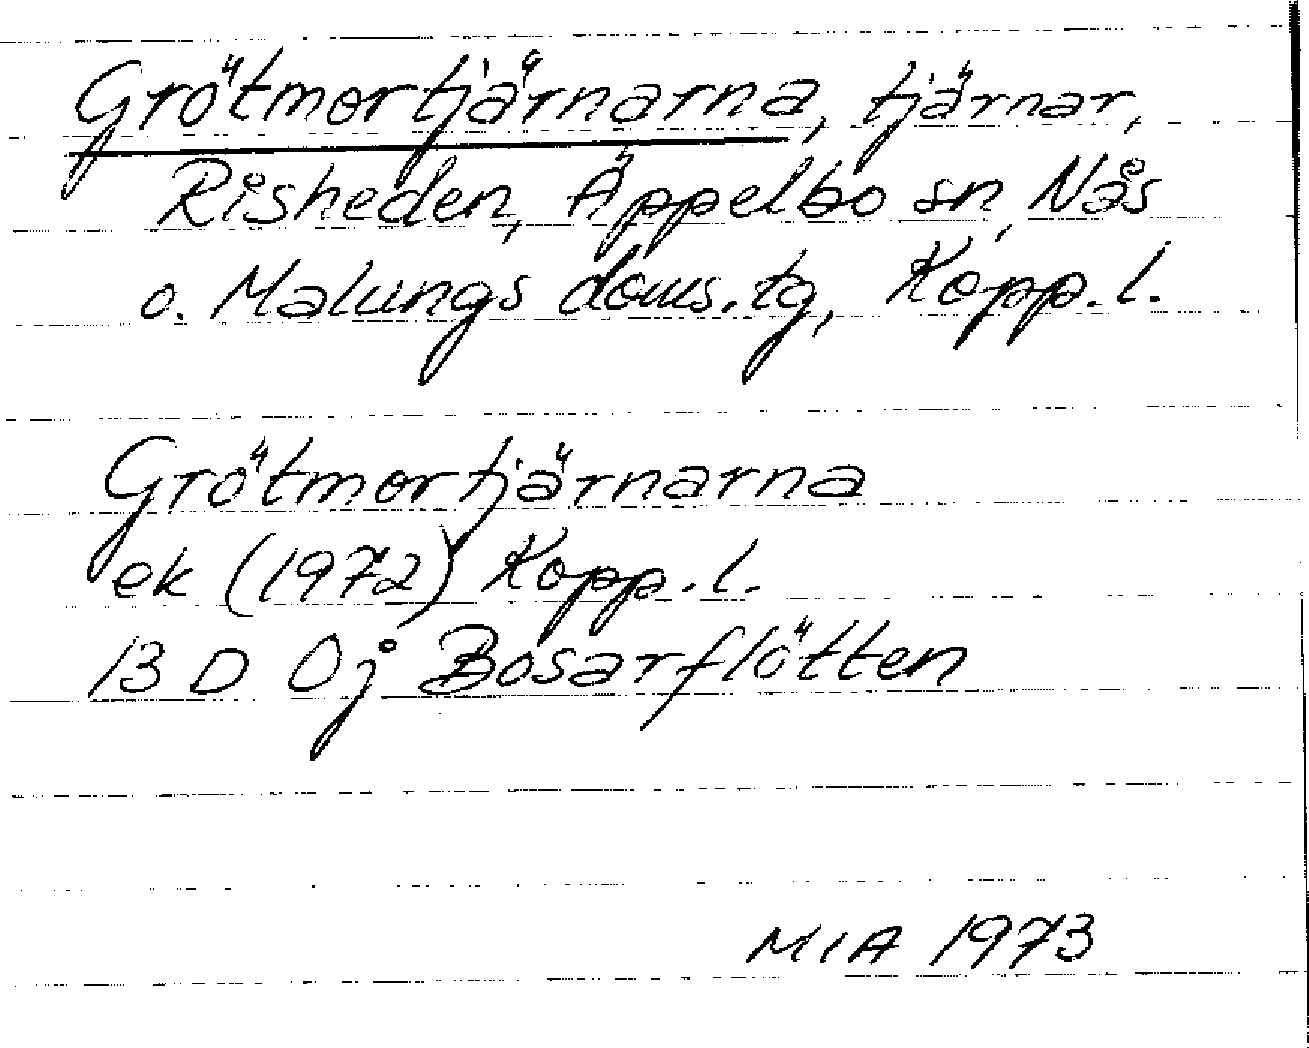 Grötmortjärnarna, tjärnar,
Risheden, Äppelbo sn, Nås
o. Malungs doms.tg, Kopp.l.
Grötmortjärnarna
ek (1972) Kopp.l.
13 D 0j Bosarflötten
MIA 1973